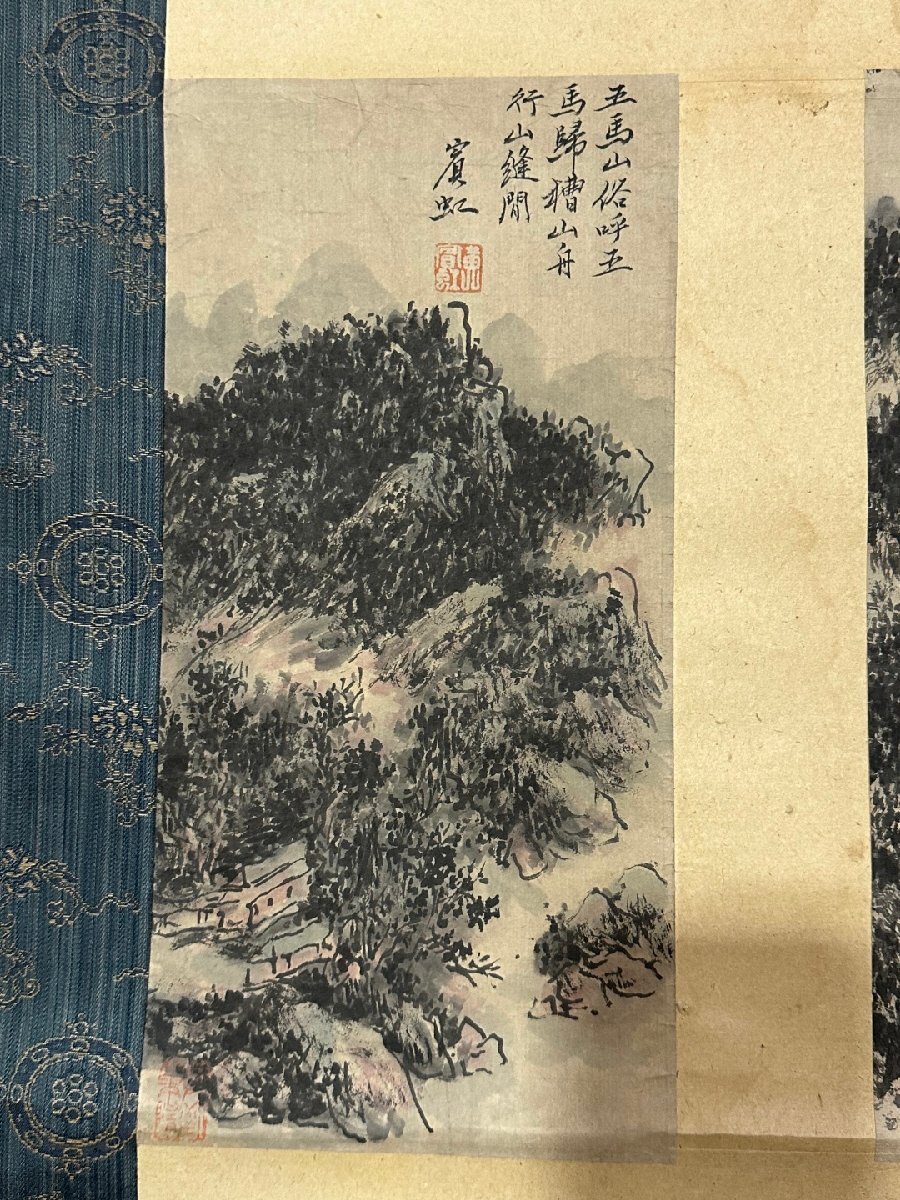 五馬山俗呼五
馬歸槽山舟
行山縫間
賓虹
黃賓虹